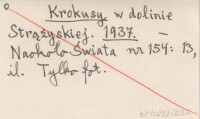 Krokusy w dolinie
Strążyskiej. 1937. –
Naokoło Świata nr 154: 13,
il. Tylko fot.